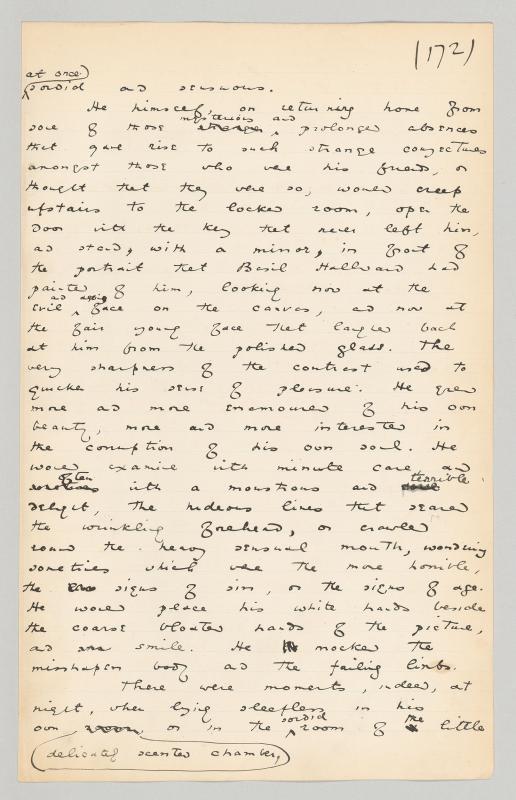 (172)
at once
sordid and sensuous.
He himself, on returning home from
mysterious and
one of those strange, prolonged absences
that gave rise to such strange conjectures
amongst those who were his friends, or
thought that they were so, would creep
upstairs to the locked room, open the
door with the key that never left him,
and stand, with a mirror, in front of
the portrait that Basil Hallward had
painted of him, looking now at the
and aging
evil face on the canvas, and now at
the fair young face that laughed back
at him from the polished glass. The
very sharpness of the contrast used to
quicken his sense of pleasure. He grew
more and more enamoured of his own
beauty, more and more interested in
the corruption of his own soul. He
would examine with minute care, and
often terrible
sometimes with a monstrous and
delight, the hideous lines that seared
the wrinkling forehead, or crawled
round the heavy sensual mouth, wondering
sometimes which were the more horrible,
the signs of sin, or the signs of age.
He would place his white hands beside
the coarse bloated hands of the picture,
and smile. He mocked the
misshapen body and the failing limbs.
There were moments, indeed, at
night, when lying sleepless in his
sordid the
own room, or in the room of little
delicately scented chamber,